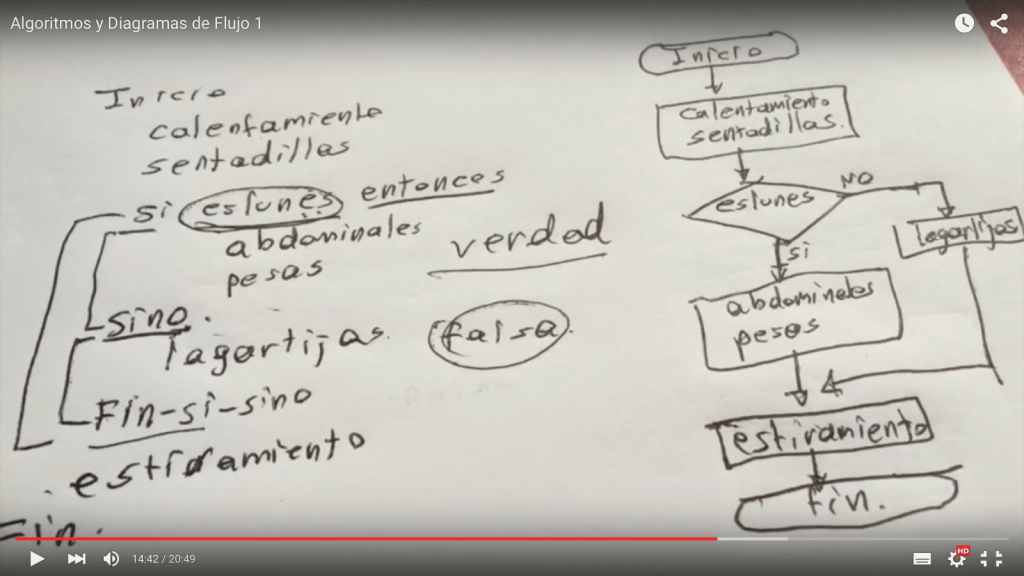 Algoritmos y Diagramas de Flujo 1
Inicio
calentamiento
sentadillas
si eslunes entonces
abdominales
pesas
verdad
sino.
lagartijas.
falsa
Fin-si-sino
estiramiento
Fin.
Inicio
calentamiento
sentadillas.
eslunes
NO
lagartijas
si
abdominales
pesas
estiramiento
fin.
14:42 / 20:49
HD